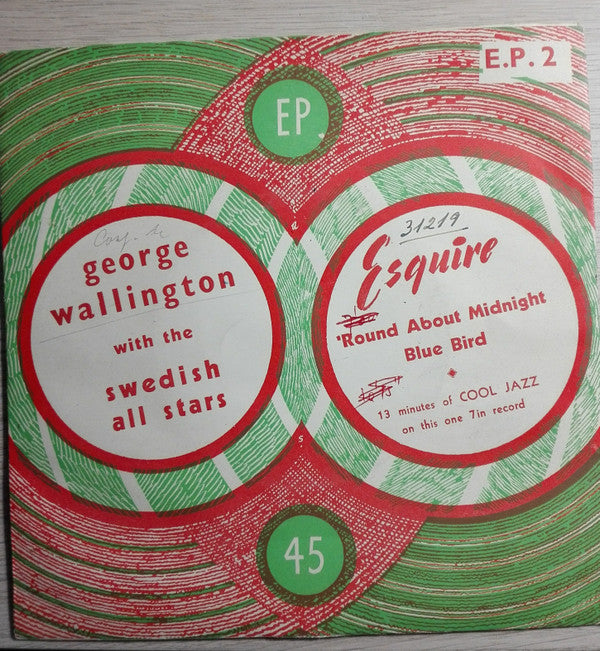 E.P. 2
EP
george
wallington
with the
swedish
all stars
31219
Esquire
'Round About Midnight
Blue Bird
13 minutes of COOL JAZZ
on this one 7in record
a
s
45